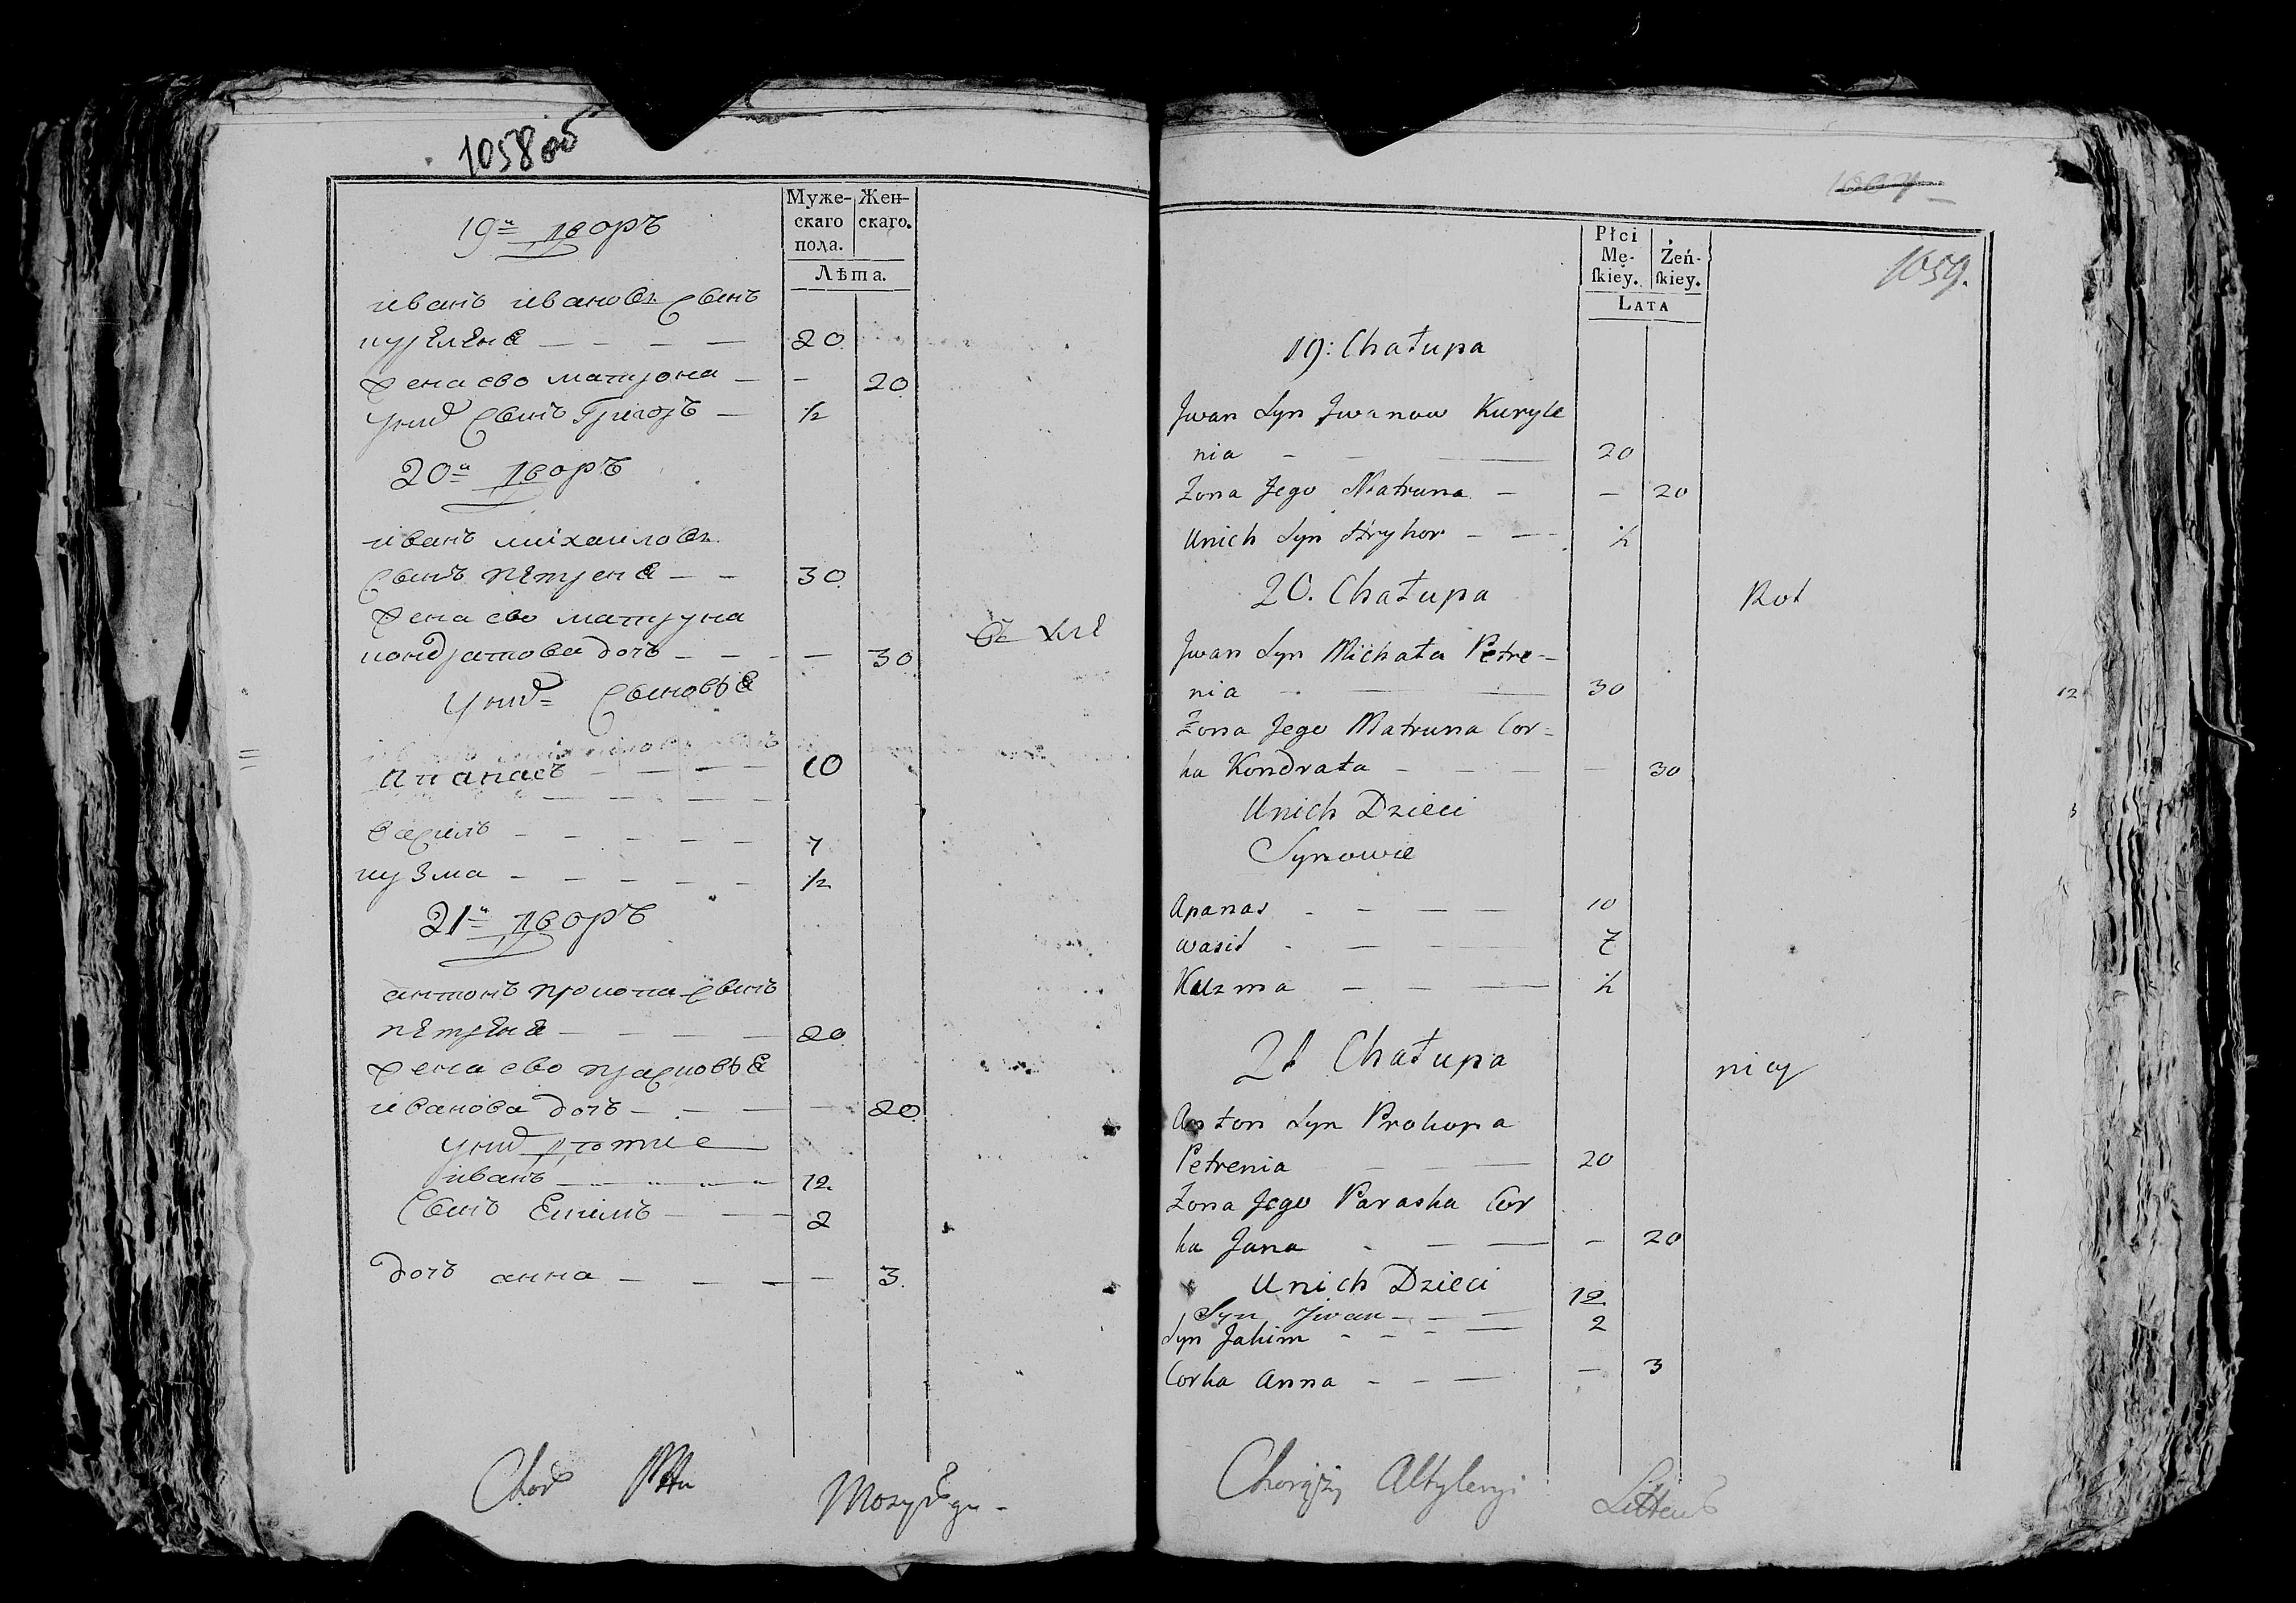 1058об
Муже-
скаго
пола.
Жен-
скаго.
Лѣта.
19й дворъ
иванъ ивановъ сынъ
куриленя — — — — 20
жена ево матрона — — 20
у них сынъ Григоръ — 1/2
20й дворъ
иванъ михаиловъ
сынъ петреня — — 30
жена ево матруна
кондратова дочь — — — — 30
у них сыновья
апанасъ — — — — 10
василь — — — — — 7
кузма — — — — — 1/2
21й дворъ
антонъ прокопа сынъ
петреня — — — — 20
жена ево прасковья
иванова дочь — — — — 20
у них дѣти
иванъ — — — — 12
сынъ Екимъ — — — 2
дочь анна — — — — — 3
Chor Ptu Mozyr
1059.
Płci
Mę-
ſkiey.
Żeń-
ſkiey.
LATA
19: Chałupa
Jwan Syn Jwanow Kuryle
nia - — — 20
Zona Jego Matruna — — 20
Unich Syn Hryhor — — - 1/2
20. Chałupa
Rot
Jwan Syn Michała Petre-
nia - — — 30
Zona Jego Matruna Cor-
ka Kondrata - — — — 30
Unich Dzieci
Synowie
Apanas - — — — 10
Wasil - — — — 7
Kuzma — — — 1/2
21 Chałupa
nicy
Anton Syn Prokopa
Petrenia — — — 20
Zona Jego Paraska Cor
ka Jana - — — — 20
Unich Dzieci
Syn Jwan - — — 12
Syn Jakim - - - — 2
Corka Anna - — — — 3
Chorąży Altyleryi